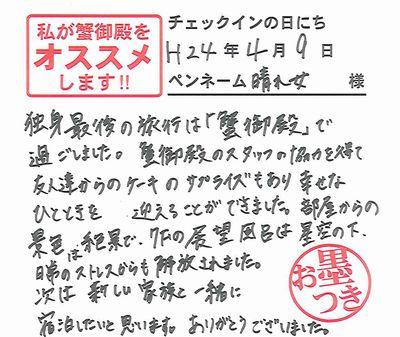 私が蟹御殿を
オススメ
します!!
チェックインの日にち
H24年4月9日
ペンネーム 晴れ女 様
独身最後の旅行は「蟹御殿」で
過ごしました。蟹御殿のスタッフの協力を得て
友人達からのケーキのサプライズもあり幸せな
ひとときを 迎えることができました。部屋からの
景色は絶景で、7Fの展望風呂は星空の下、
日常のストレスからも解放されました。
次は新しい家族と一緒に
宿泊したいと思います。ありがとうございました。
お墨つき